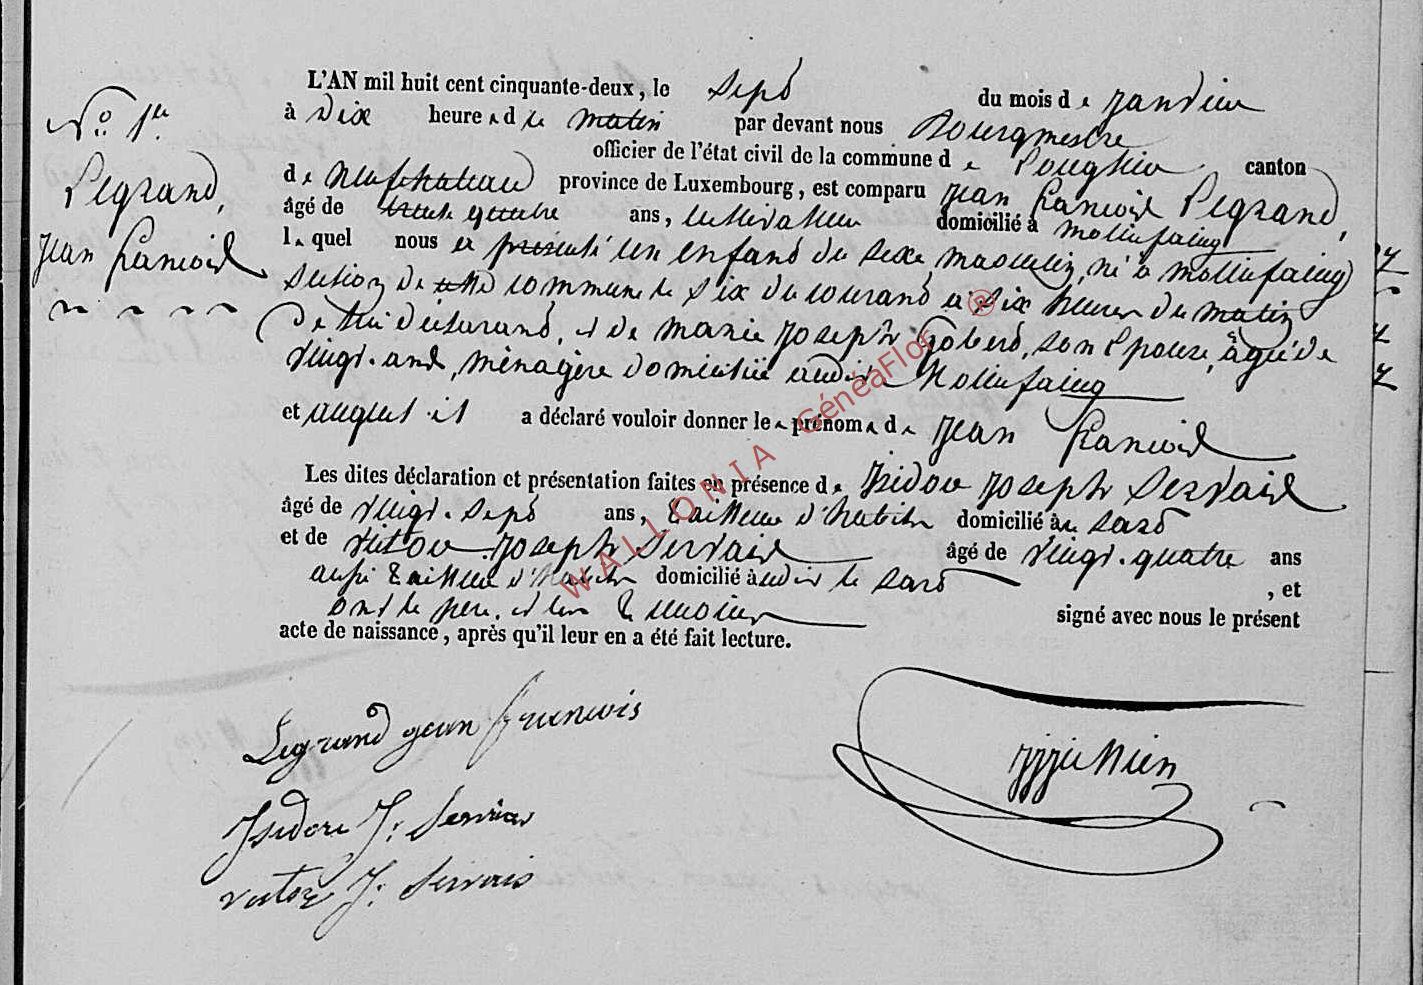 L'AN mil huit cent cinquante-deux, le sept du mois de janvier
à dix heures du matin par devant nous Bourgmestre
officier de l'état civil de la commune de Longlier canton
de Neufchateau province de Luxembourg, est comparu Jean François Legrand,
âgé de trente quatre ans, cultivateur domicilié à Molinfaing
lequel nous a présenté un enfant du sexe masculin, né à Molinfaing
section de cette commune le six du courant à six heures du matin
de lui déclarant, et de Marie Joseph Gobert, son épouse, âgée de
vingt ans, ménagère domiciliée audit Molinfaing
et auquel il a déclaré vouloir donner les prénoms de Jean François
Les dites déclaration et présentation faites en présence de Isidore Joseph Servais
âgé de vingt-sept ans, tailleur d'habits domicilié à sart
et de Victor Joseph Servais âgé de vingt-quatre ans
aussi tailleur d'habits domicilié audit le sart , et
ont le père et les témoins signé avec nous le présent
acte de naissance, après qu'il leur en a été fait lecture.
No 1er
Legrand,
Jean François
Legrand jean francois
Isidore J: Servais
victor J: Servais
WALLONIA GénéaFlor ®